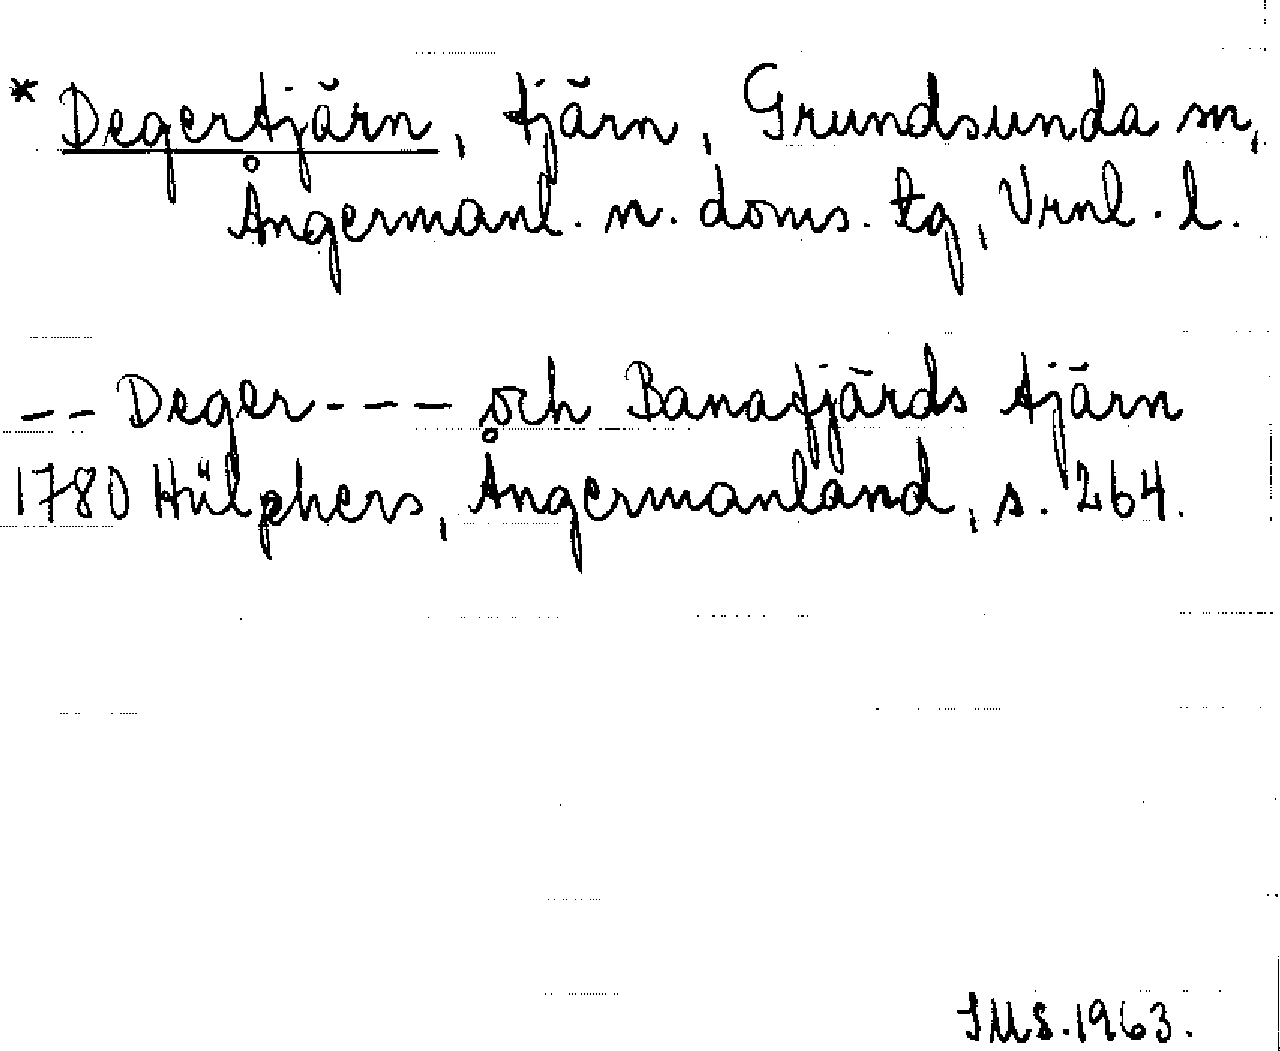 * Degertjärn, tjärn, Grundsunda sn,
Ångermanl. n. doms. tg, Vrnl. l.
-- Deger --- och Banafjärds tjärn
1780 Hülphers, Ångermanland, s. 264.
IMS. 1963.